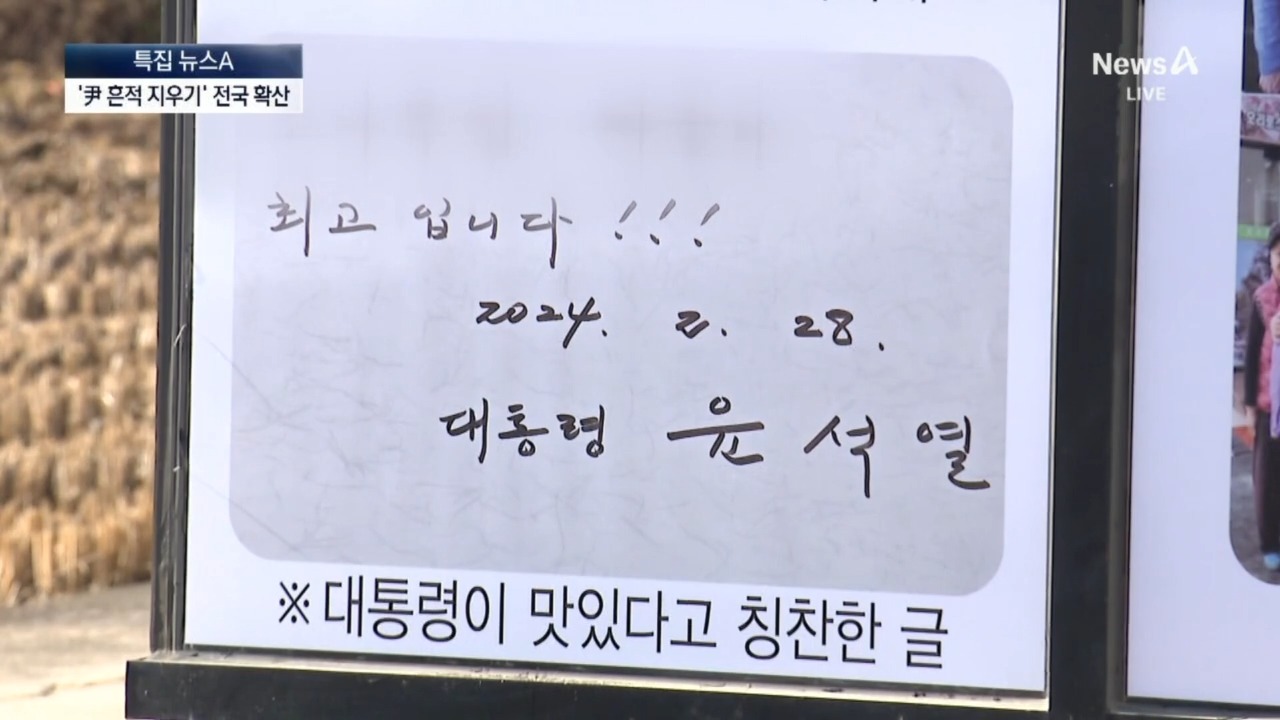 특집 뉴스A
'尹 흔적 지우기' 전국 확산
NewsA
LIVE
최고 입니다 !!!
2024. 2. 28.
대통령 윤석열
※대통령이 맛있다고 칭찬한 글